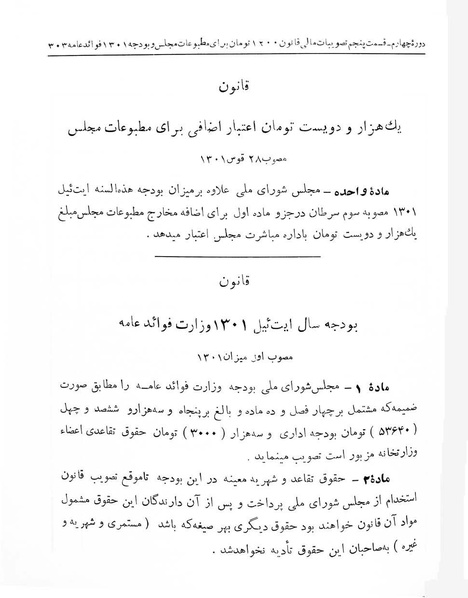 دورهٔ چهارم ـ قسمت پنجم تصویبات مالی قانون ۱۲۰۰ تومان برای مطبوعات مجلس و بودجه ۱۳۰۱ فوائد عامه ۳۰۳
قانون
یك هزار و دویست تومان اعتبار اضافی برای مطبوعات مجلس
مصوب ۲۸ قوس ۱۳۰۱
مادهٔ واحده ـ مجلس شورای ملی علاوه بر میزان بودجه هذه‌السنه ایت‌ئیل
۱۳۰۱ مصوبه سوم سرطان در جزو ماده اول برای اضافه مخارج مطبوعات مجلس مبلغ
یك هزار و دویست تومان باداره مباشرت مجلس اعتبار میدهد .
قانون
بودجه سال ایت‌ئیل ۱۳۰۱ وزارت فوائد عامه
مصوب اول میزان ۱۳۰۱
مادهٔ ۱ ـ مجلس شورای ملی بودجه وزارت فوائد عامـه را مطابق صورت
ضمیمه‌که مشتمل بر چهار فصل و ده ماده و بالغ بر پنجاه و سه‌هزار و ششصد و چهل
( ۵۳۶۴۰ ) تومان بودجه اداری و سه‌هزار ( ۳۰۰۰ ) تومان حقوق تقاعدی اعضاء
وزارتخانه مزبور است تصویب مینماید .
مادهٔ ۲ ـ حقوق تقاعد و شهریه معینه در این بودجه تاموقع تصویب قانون
استخدام از مجلس شورای ملی پرداخت و پس از آن دارندگان این حقوق مشمول
مواد آن قانون خواهند بود حقوق دیگری بهر صیغه‌که باشد ( مستمری و شهریه و
غیره ) به‌صاحبان این حقوق تأدیه نخواهدشد .